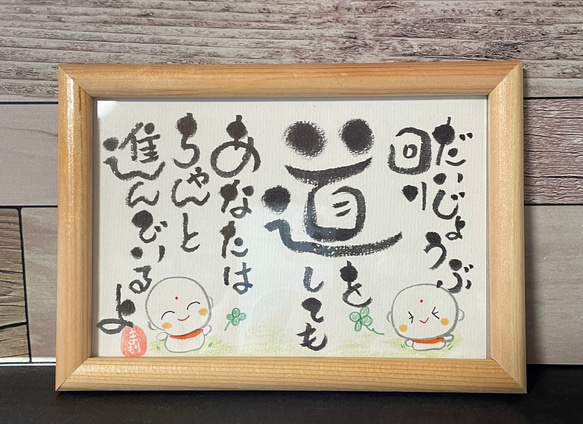 だいじょうぶ
回り
道を
しても
あなたは
ちゃんと
進んでいるよ